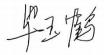 毕玉鹤